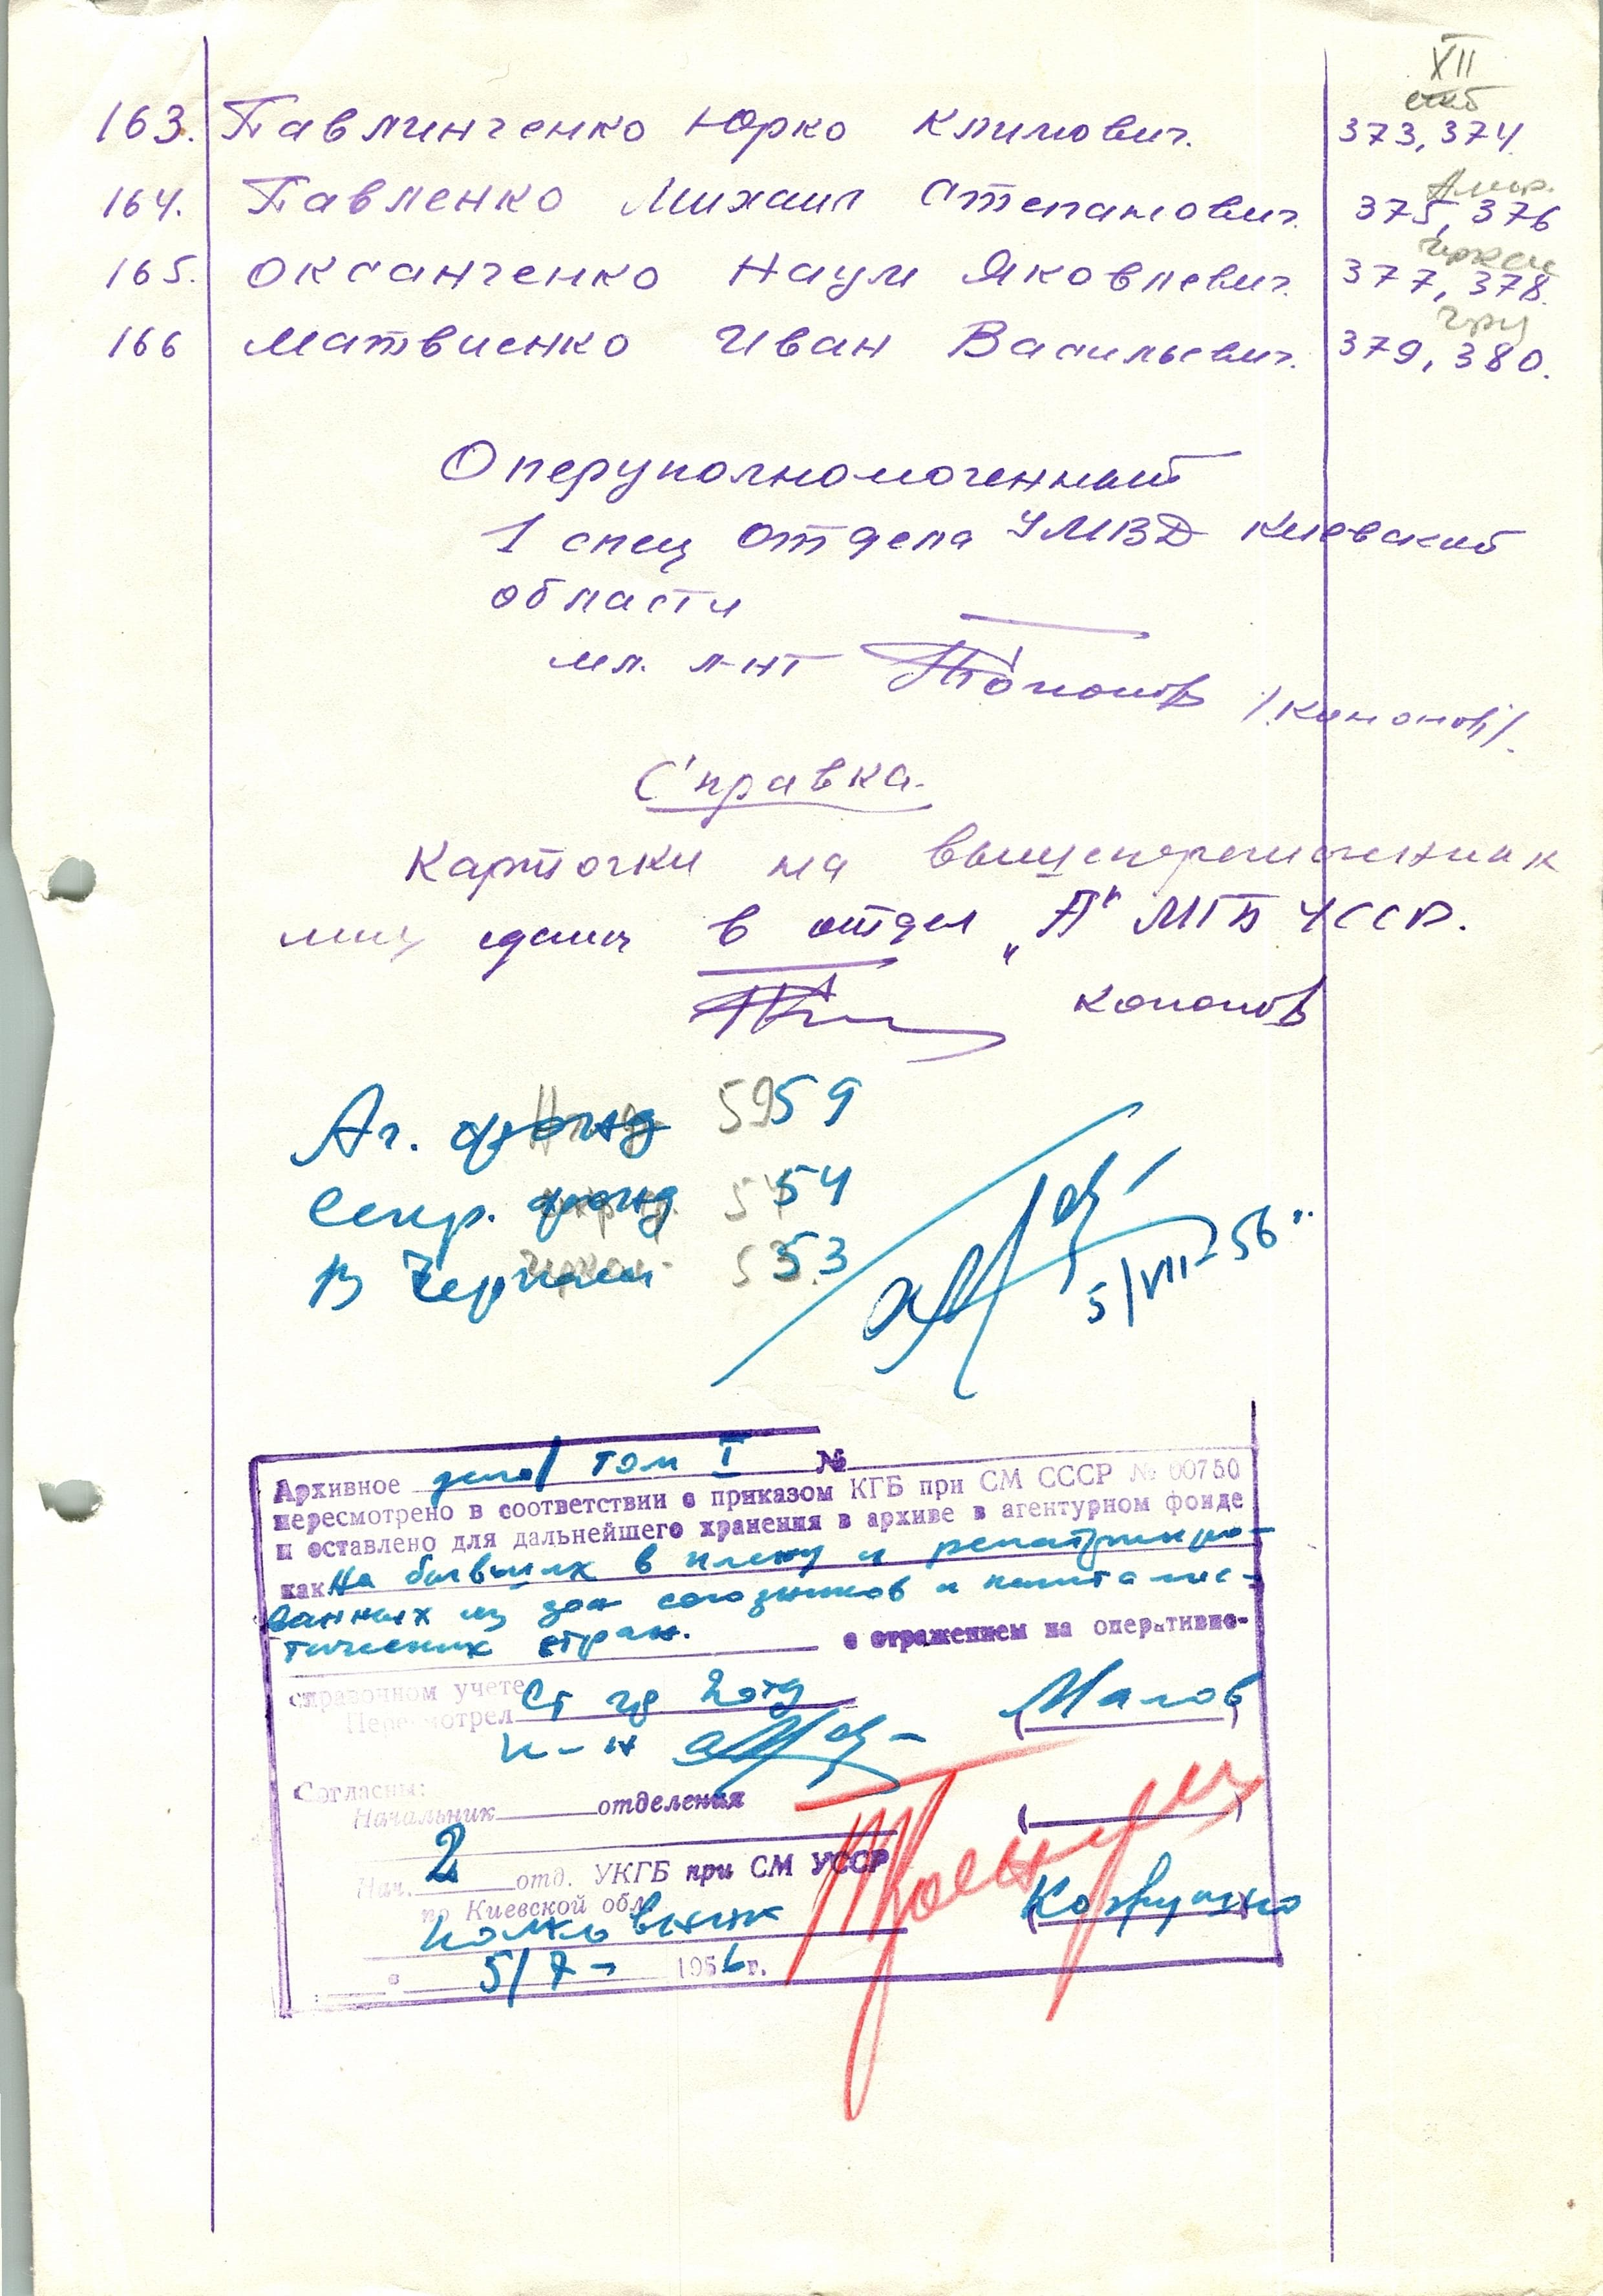 XII
163. Павлинченко Юрко Климович. 373, 374
164. Павленко Михаил Степанович. 375, 376
165. Оксанченко Наум Яковлевич. 377, 378.
166 Матвиенко Иван Васильевич. 379, 380.
Оперуполномоченный
1 спец отдела УМВД Киевской
области
мл. л-нт /Кононов/.
Справка.
Карточки на вышеперечисленных
лиц сданы в отдел „А" МГБ УССР.
Кононов
Аг. фонд 59 59
Секр. фонд 54 54
В Черкассы 53 53
5/VII-56
Архивное дело/ том I №
пересмотрено в соответствии с приказом КГБ при СМ СССР № 00750
и оставлено для дальнейшего хранения в архиве в агентурном фонде
как На бывших в плену и репатрииро-
ванных из зон союзников и капиталис-
тических стран. с отражением на оперативно-
справочном учете
Пересмотрел Ст 2 отд (Малов)
к-н
Согласны:
Начальник отделения ( )
Нач. 2 отд. УКГБ при СМ УССР
по Киевской обл.
полковник
5/7- 1956 г.